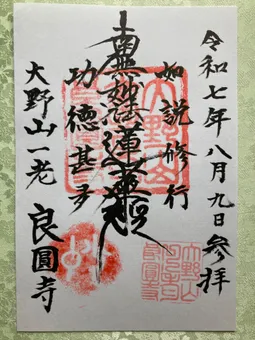 令和七年八月九日参拝
如説修行
南無妙法蓮華経
功徳甚多
大野山一老
良圓寺
大野山